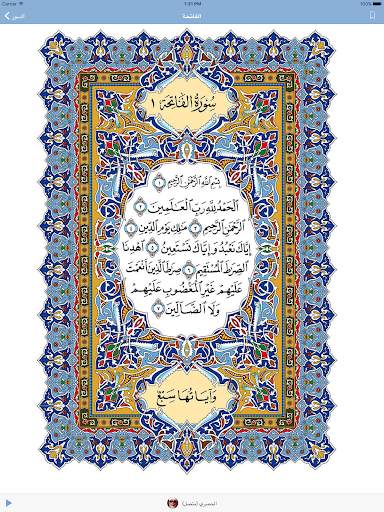 Carrier 1:31 PM 100%
السور الفاتحة
سُورَةُ الفَاتِحَةِ ١
بِسْمِ ٱللَّهِ ٱلرَّحْمَٰنِ ٱلرَّحِيمِ ١
ٱلْحَمْدُ لِلَّهِ رَبِّ ٱلْعَٰلَمِينَ ٢
ٱلرَّحْمَٰنِ ٱلرَّحِيمِ ٣ مَٰلِكِ يَوْمِ ٱلدِّينِ ٤
إِيَّاكَ نَعْبُدُ وَإِيَّاكَ نَسْتَعِينُ ٥ ٱهْدِنَا
ٱلصِّرَٰطَ ٱلْمُسْتَقِيمَ ٦ صِرَٰطَ ٱلَّذِينَ أَنْعَمْتَ
عَلَيْهِمْ غَيْرِ ٱلْمَغْضُوبِ عَلَيْهِمْ
وَلَا ٱلضَّآلِّينَ ٧
وَآيَاتُهَا سَبْعٌ
الحصري (متصل)